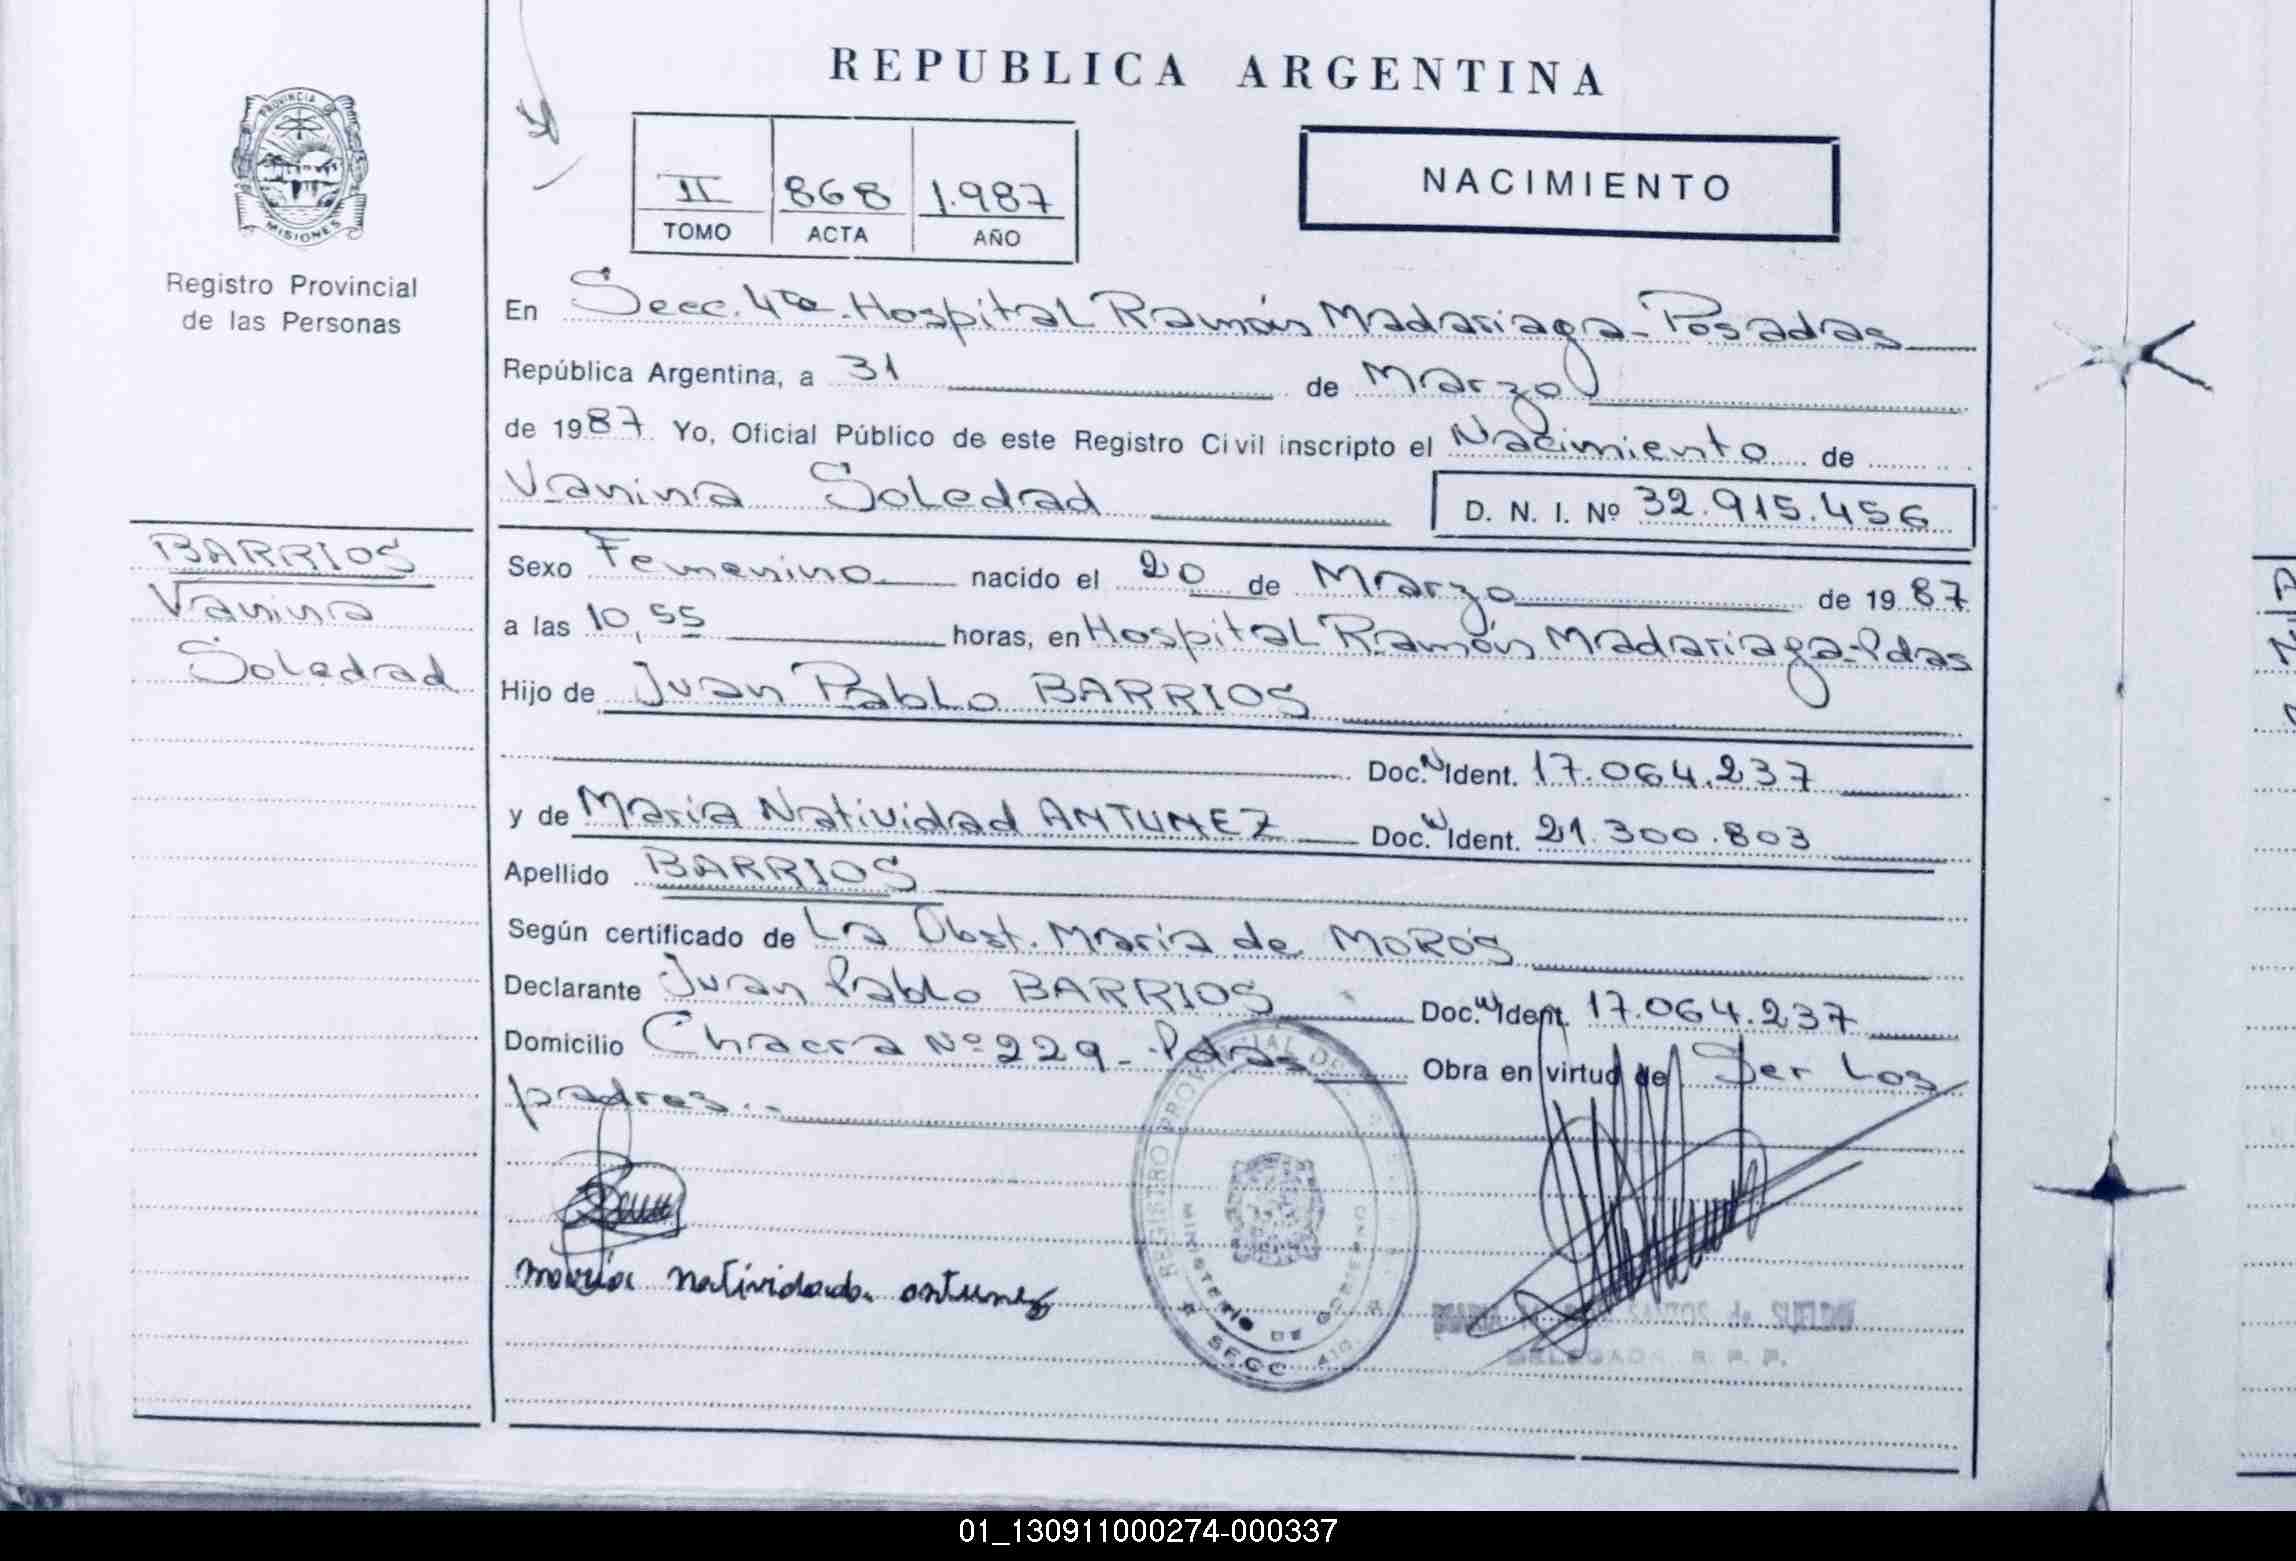 REPUBLICA ARGENTINA
PROVINCIA DE
MISIONES
Registro Provincial
de las Personas
II 868 1.987
TOMO ACTA AÑO
NACIMIENTO
En Secc. 4ta. Hospital Ramón Madariaga - Posadas
República Argentina, a 31 de Marzo
de 1987. Yo, Oficial Público de este Registro Civil inscripto el Nacimiento de
Vanina Soledad D. N. I. Nº 32.915.456
BARRIOS
Vanina
Soledad
Sexo Femenino nacido el 20 de Marzo de 1987
a las 10,55 horas, en Hospital Ramón Madariaga-Pdas
Hijo de Juan Pablo BARRIOS
Doc. N Ident. 17.064.237
y de María Natividad ANTUNEZ Doc. N Ident. 21.300.803
Apellido BARRIOS
Según certificado de La Obst. María de MOROS
Declarante Juan Pablo BARRIOS Doc. N Ident. 17.064.237
Domicilio Chacra Nº 229 - Pdas Obra en virtud de Ser Los
padres.-
REGISTRO PROVINCIAL DE
MINISTERIO DE GOBIERNO
SECC
maria natividad antunez
SANTOS de SUELDO
DELEGADA R. P. P.
01_130911000274-000337